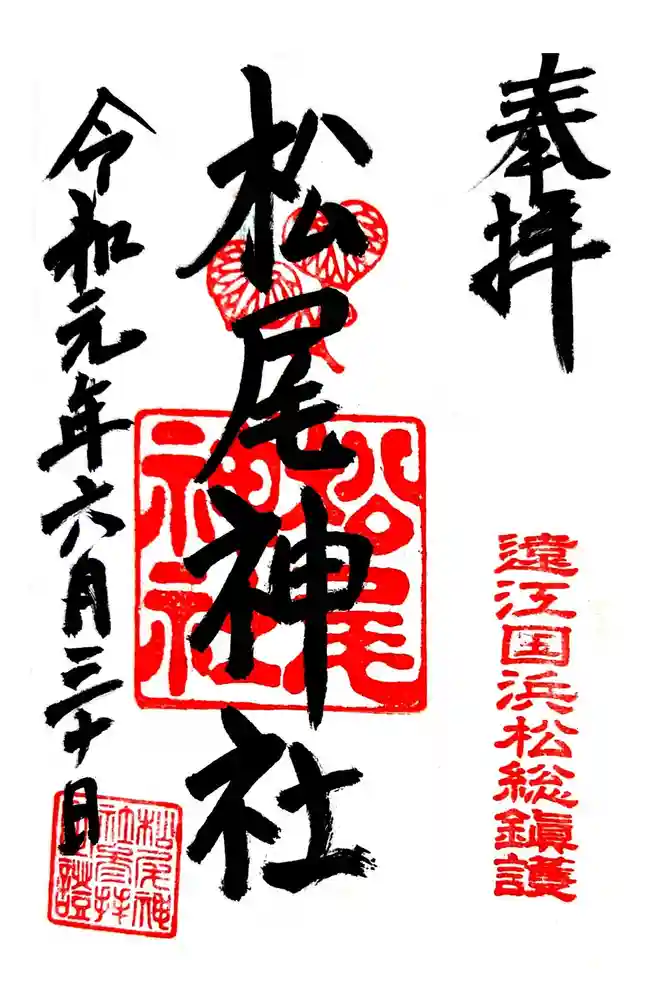 奉拝
遠江国浜松総鎮護
松尾神社
松尾
神社
令和元年六月三十日
松尾神
社参拝